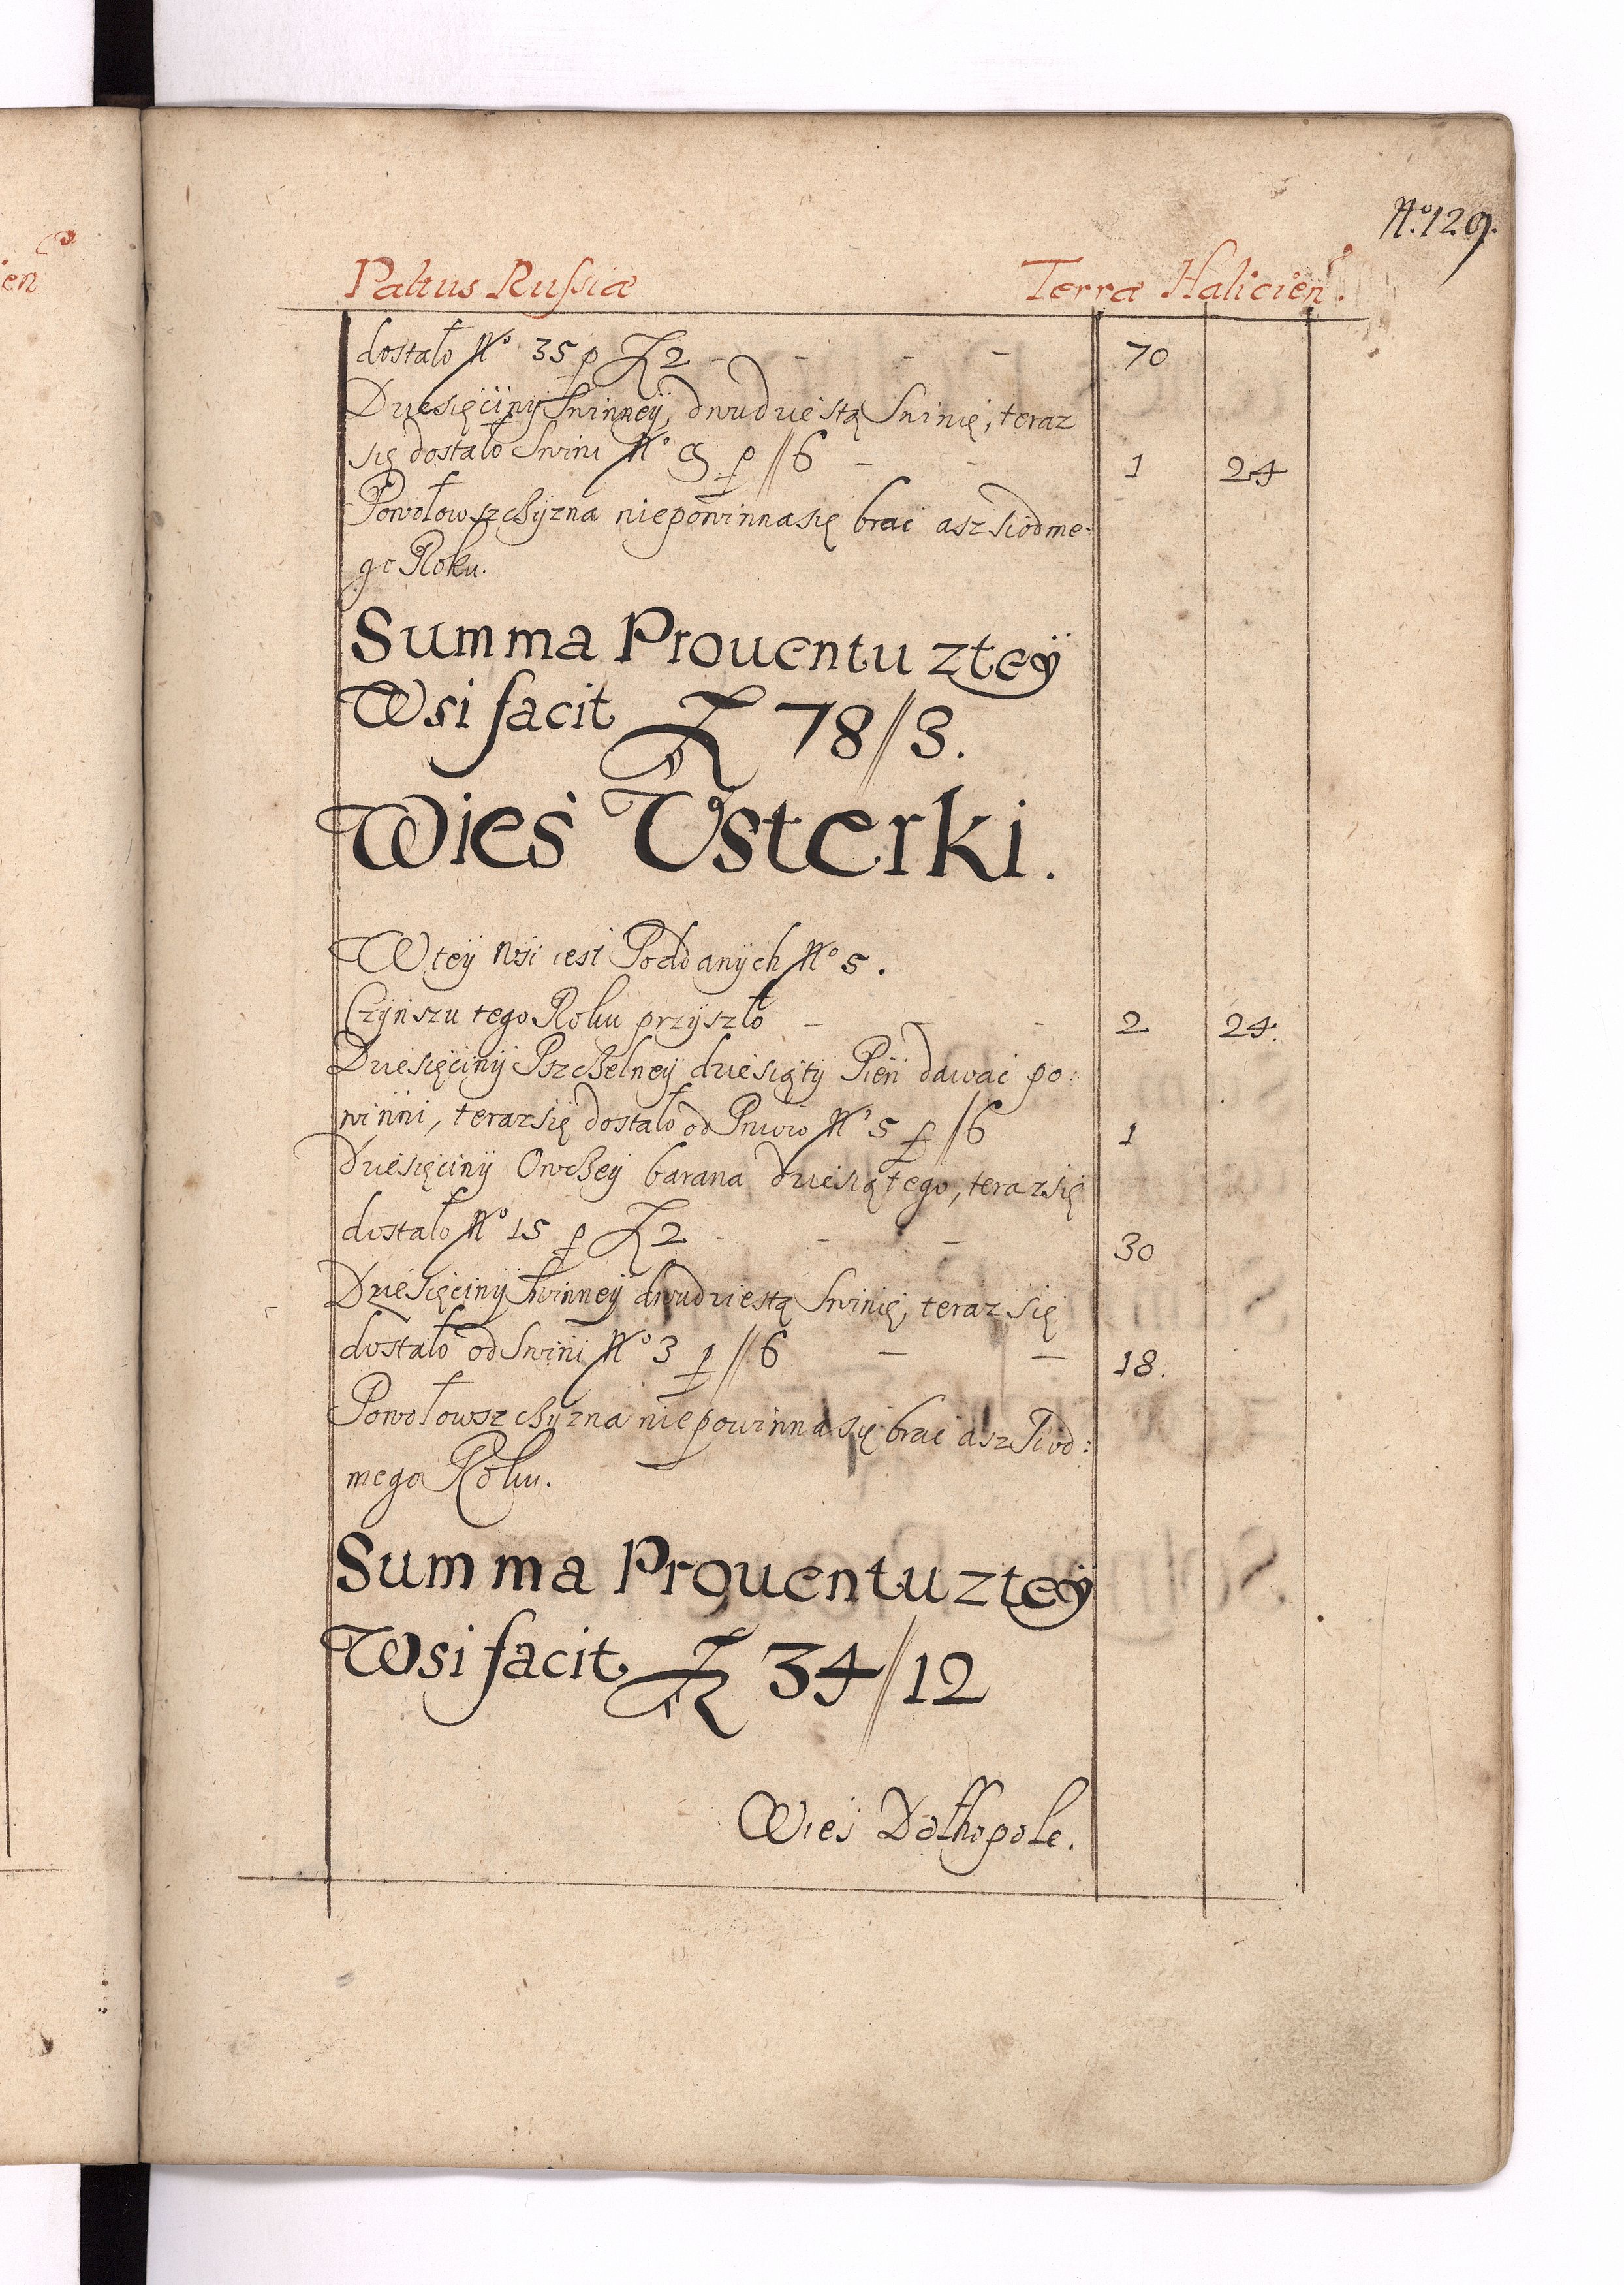 ien
Nº 129.
Paltus Russiæ Terræ Halicien̄.
dostało Nº 35 p Zł 2 - - - - 70
Dziesięciny Swinney, dwudziestą Swinię, teraz
się dostało Swini Nº 9 p // 6 - - 1 24
Powołowszchyzna niepowinna się brać asz siodme-
go Roku.
Summa Prouentu ztey
Wsi facit Zł 78//3.
Wieś Vsterki.
W tey wsi iest Poddanych Nº 5.
Czynszu tego Roku przyszło - - - 2 24.
Dziesięciny Pszchelney dziesiąty Pień dawać po:
winni, teraz się dostało od Pniow Nº 5 p // 6 1
Dziesięciny Owchey barana dziesiątego, teraz się
dostało Nº 15 p Zł 2 - - - 30
Dziesięciny Swinney dwudziestą Swinię, teraz się
dostało od Swini Nº 3 p // 6 - - 18.
Powołowszchyzna niepowinna się brać asz Siod:
mego Roku.
Summa Prouentu ztey
Wsi facit Zł 34//12
Wieś Dołhopole.